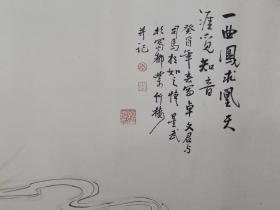 一曲鳳求凰天
涯覓知音
癸酉年冬寫卓文君与
司馬相如之情 星武
於蜀都紫竹樓
并记